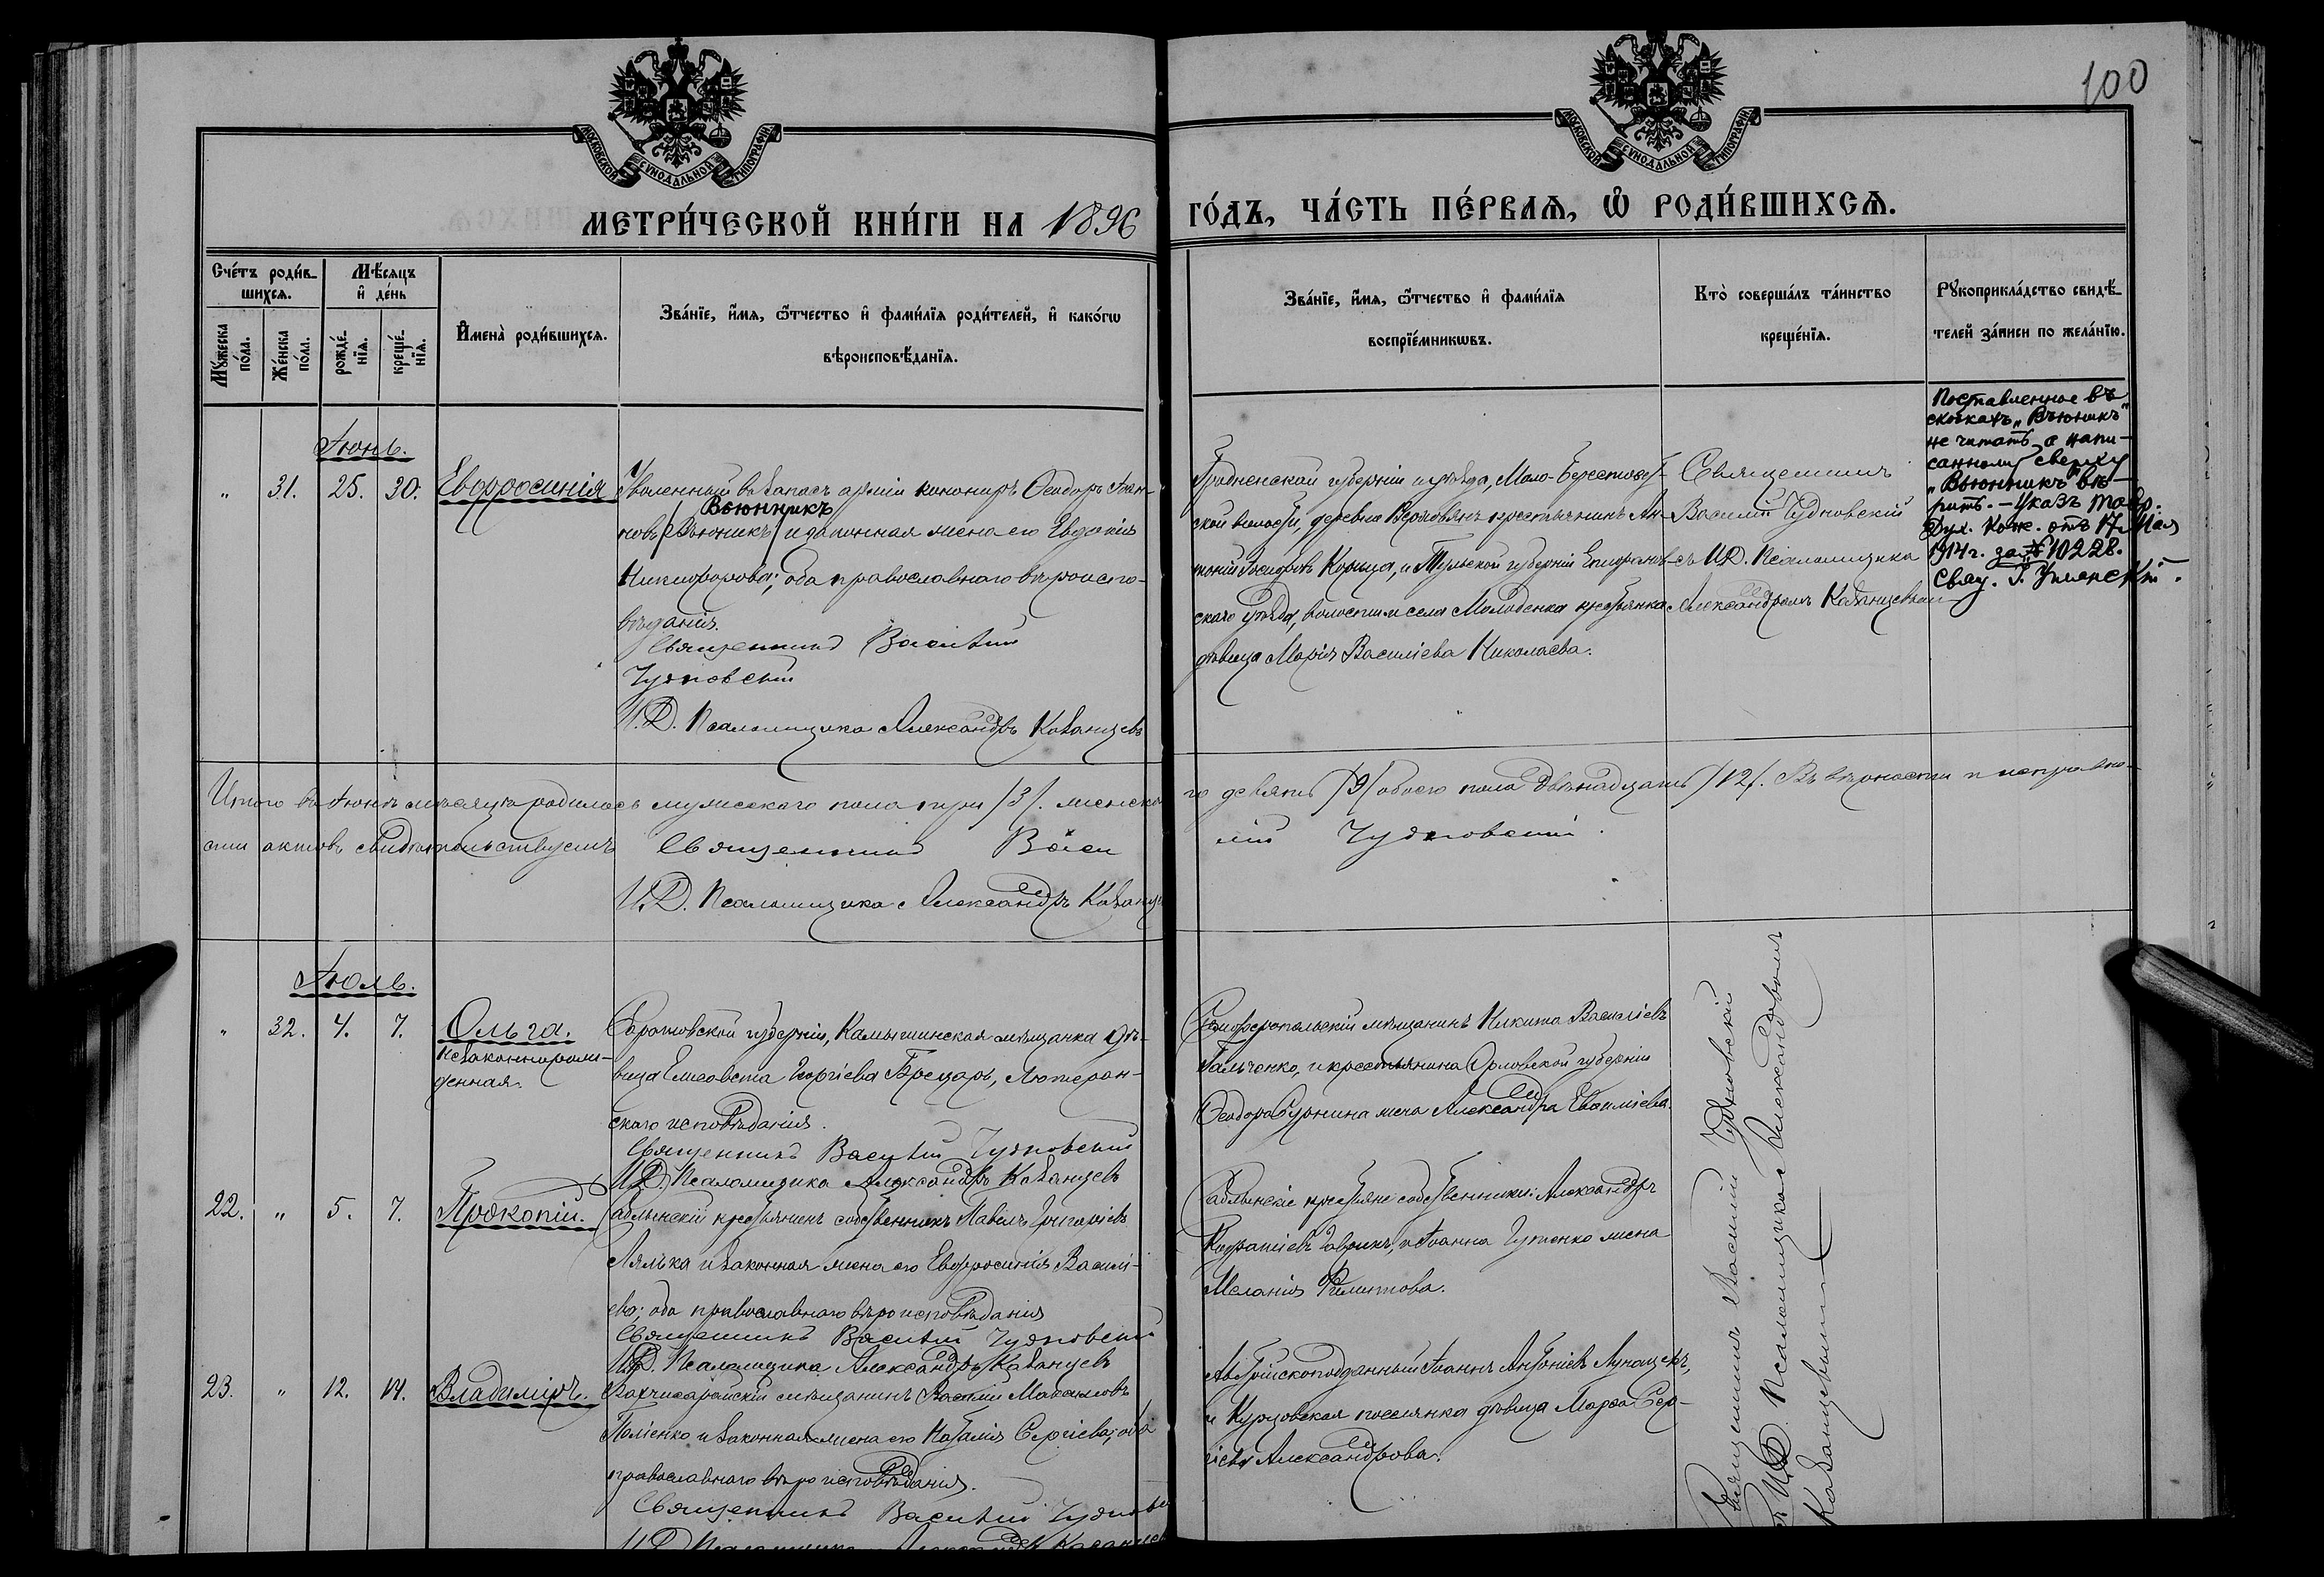 100
МОСКОВСКОЙ СѴНОДАЛЬНОЙ ТИПОГРАФІИ
МОСКОВСКОЙ СѴНОДАЛЬНОЙ ТИПОГРАФІИ
МЕТРИ́ЧЕСКОЙ КНИ́ГИ НА 1896
ГО́ДЪ, ЧА́СТЬ ПЕ́РВАѦ, Ѡ҆ РОДИ́ВШИХСѦ.
Сче́тъ роди́в-
шихсѧ.
Мѣ́сѧцъ
и҆ де́нь
Мꙋ́жеска
по́ла.
Же́нска
по́ла.
рожде́-
нїѧ.
креще́-
нїѧ.
И҆мена̀ роди́вшихсѧ.
Зва́нїе, и҆́мѧ, ѻ҆́тчество и҆ фами́лїѧ роди́телей, и҆ како́гѡ
вѣроисповѣ́данїѧ.
Зва́нїе, и҆́мѧ, ѻ҆́тчество и҆ фами́лїѧ
воспрїе́мникѡвъ.
Кто̀ соверша́лъ та́инство
креще́нїѧ.
Рꙋкоприкла́дство свидѣ́-
телей за́писи по жела́нїю.
Іюнь.
" 31. 25. 30. Евфросинія
Уволенный въ запасъ арміи канониръ Ѳеодоръ Іоан-
Вьюнникъ
новъ /Вьюникъ/ и законная жена его Евдокія
Никифорова; оба православнаго вѣроиспо-
вѣданія.
Священникъ Василій
Чудновскій
И.Д. Псаломщика Александръ Казанцевъ
Гродненской губерніи и уѣзда, Мало-Берестовиц-
ской волости, деревни крестьянинъ Ан-
тоній Іосифовъ Корица, и Тульской губерніи Епифанов-
скаго уѣзда, волости и села Молоденка крестьянка
дѣвица Марія Василіева Николаева.
Священникъ
Василій Чудновскій
съ И.Д. Псаломщика
Александромъ Казанцевымъ
Поставленное въ
скобкахъ „Вьюникъ"
не читать, а напи-
санному сверху
„Вьюнникъ" вѣ-
рить. – Указъ Тавр.
Дух. Конс. отъ 17 Мая
1914 г. за № 10228.
Свящ. Г. Успенскій.
Итого въ Іюнѣ мѣсяцѣ родилось мужескаго пола три /3/. женска-
го девять /9/ обоего пола двѣнадцать /12/. Въ вѣрности и исправно-
сти актовъ свидѣтельствуемъ Священникъ Васи
лій Чудновскій.
И.Д. Псаломщика Александръ Казанц
Іюль.
" 32. 4. 7. Ольга.
незаконнорож-
денная.
Саратовской губерніи, Камышинская мѣщанка дѣ-
вица Елисавета Георгіева Брецаръ, Лютеран-
скаго исповѣданія.
Священникъ Василій Чудновскій
И.Д. Псаломщика Александръ Казанцевъ
Симферопольскій мѣщанинъ Никита Василіевъ
Гальченко, и крестьянина Орловской губерніи
Ѳеодора Сурнина жена Александра Евфиміева.
22. " 5. 7. Прокопій.
Саблынскій крестьянинъ собственникъ Павелъ Григоріевъ
Лялька и законная жена его Евфросинія Васил-
ева; оба православнаго вѣроисповѣданія
Священникъ Василій Чудновскій
И.Д. Псаломщика Александръ Казанцевъ
Саблынскіе крестьяне собственники: Александръ
Гаврикъ, и Іоанна Гуменко жена
Меланія Филиппова.
23. " 12. 14. Владиміръ.
Бахчисарайскій мѣщанинъ Василій Максимовъ
Поліенко и законная жена его Наталія Сергіева; оба
православнаго вѣроисповѣданія.
Священникъ Василій Чудновс
И.Д. Псаломщика Александръ Казанцев
Австрійскоподданный Іоаннъ Антоніевъ Лунацекъ,
и Курцовская поселянка дѣвица Марѳа Сер-
гіева Александрова.
Священникъ Василій Чудновскій
съ И.Д. Псаломщика Александромъ
Казанцевымъ